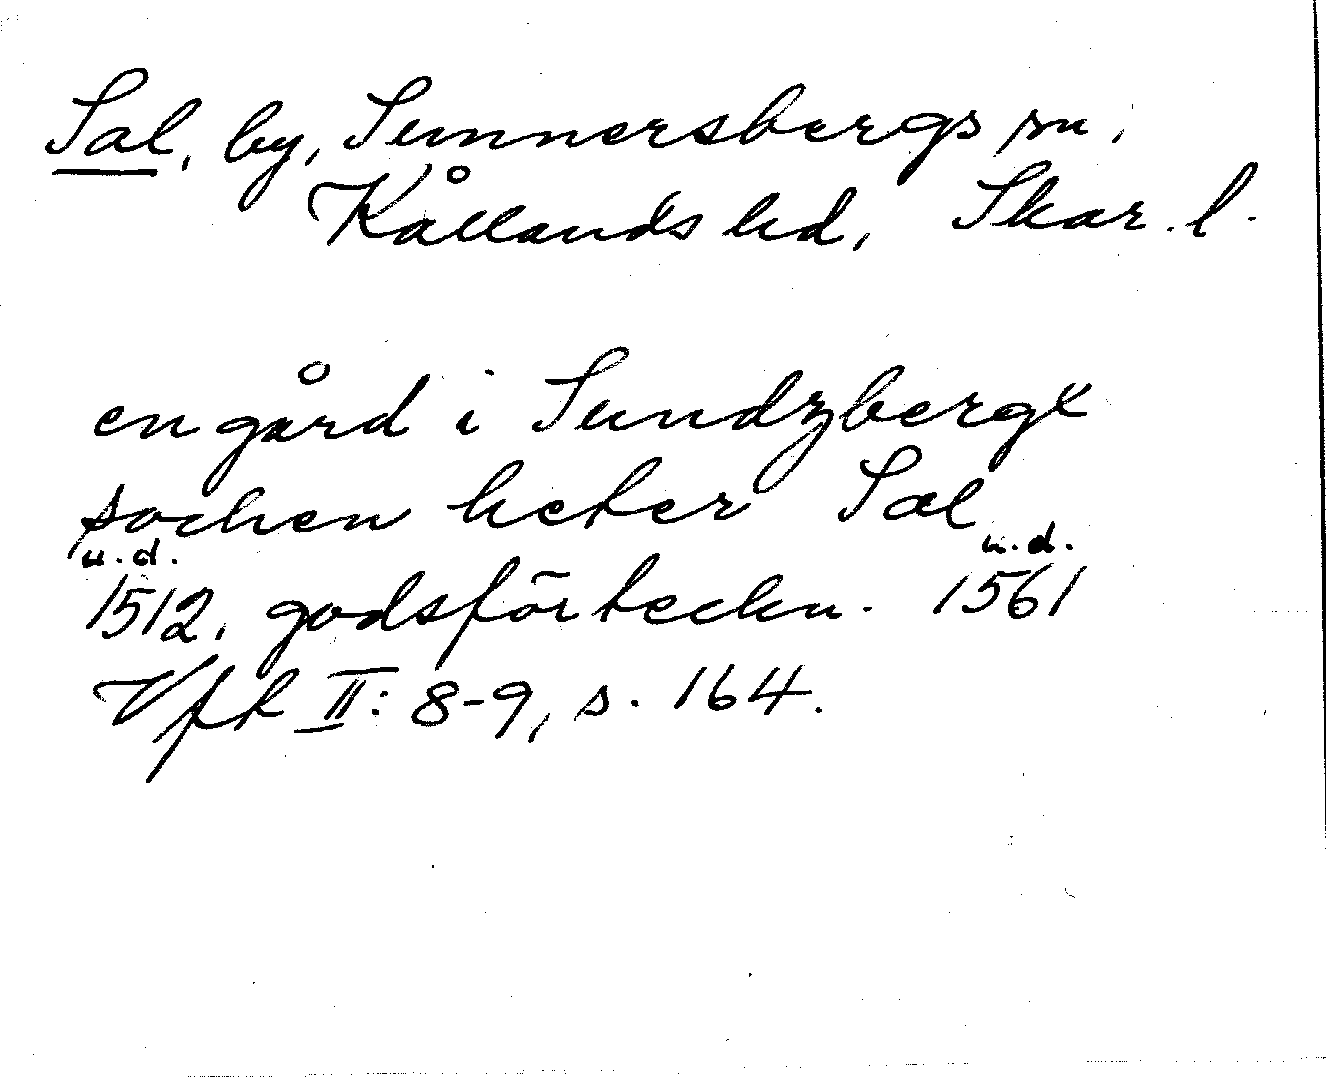 Sal, by, Sunnersbergs sn,
Kållands hd, Skar. l.
en gård i Sundzbergx
sochen heter Sal
u.d. u.d.
1512, godsförteckn. 1561
Vfk II: 8-9, s. 164.